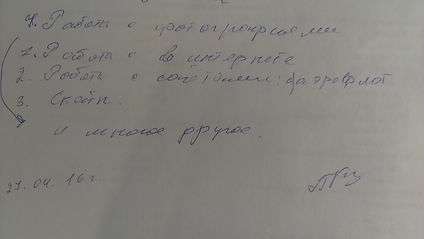 4. Работа с фотографиями
1. Работа с во интернете
2. Работа с сайтами: аэрофлот
3. Скайп.
и многое другое.
27.04.16г.